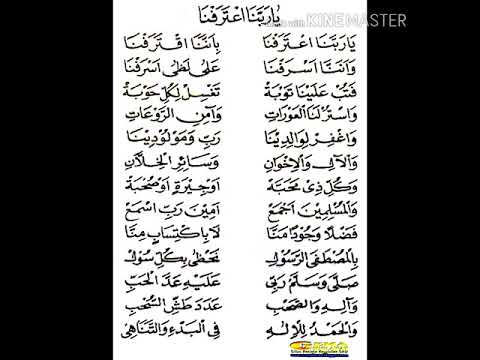 يَارَبَّنَا اعْتَرَفْنَا
KINEMASTER
يَارَبَّنَا اعْتَرَفْنَا بِأَنَّنَا اقْتَرَفْنَا
وَاَنَّنَا اَسْرَفْنَا عَلَى لَظَى اَشْرَفْنَا
فَتُبْ عَلَيْنَا تَوْبَةً تَغْسِلْ لِكُلِّ حَوْبَةٍ
وَاسْتُرْ لَنَا الْعَوْرَاتِ وَآمِنِ الرَّوْعَاتِ
وَاغْفِرْ لِوَالِدِيْنَا رَبِّ وَمَوْلُوْدِيْنَا
وَالْآلِ وَالْإِخْوَانِ وَسَائِرِ الْخِلَّانِ
وَكُلِّ ذِيْ مَحَبَّةٍ اَوْجِيْرَةٍ اَوْصُحْبَةٍ
وَالْمُسْلِمِيْنَ اَجْمَعْ اَمِيْنَ رَبِّ اسْمَعْ
فَضْلًا وَجُوْدًا مَنَّا لَا بِاكْتِسَابٍ مِنَّا
بِالْمُصْطَفَى الرَّسُوْلِ نَحْظَى بِكُلِّ سُوْلِ
صَلَّى وَسَلَّمْ رَبِّيْ عَلَيْهِ عَدَّ الْحَبِّ
وَآلِهِ وَالصَّحْبِ عَدَدَ طَشِّ السُّحْبِ
وَالْحَمْدُ لِلْاِلٰهِ فِي الْبَدْءِ وَالتَّنَاهِيْ